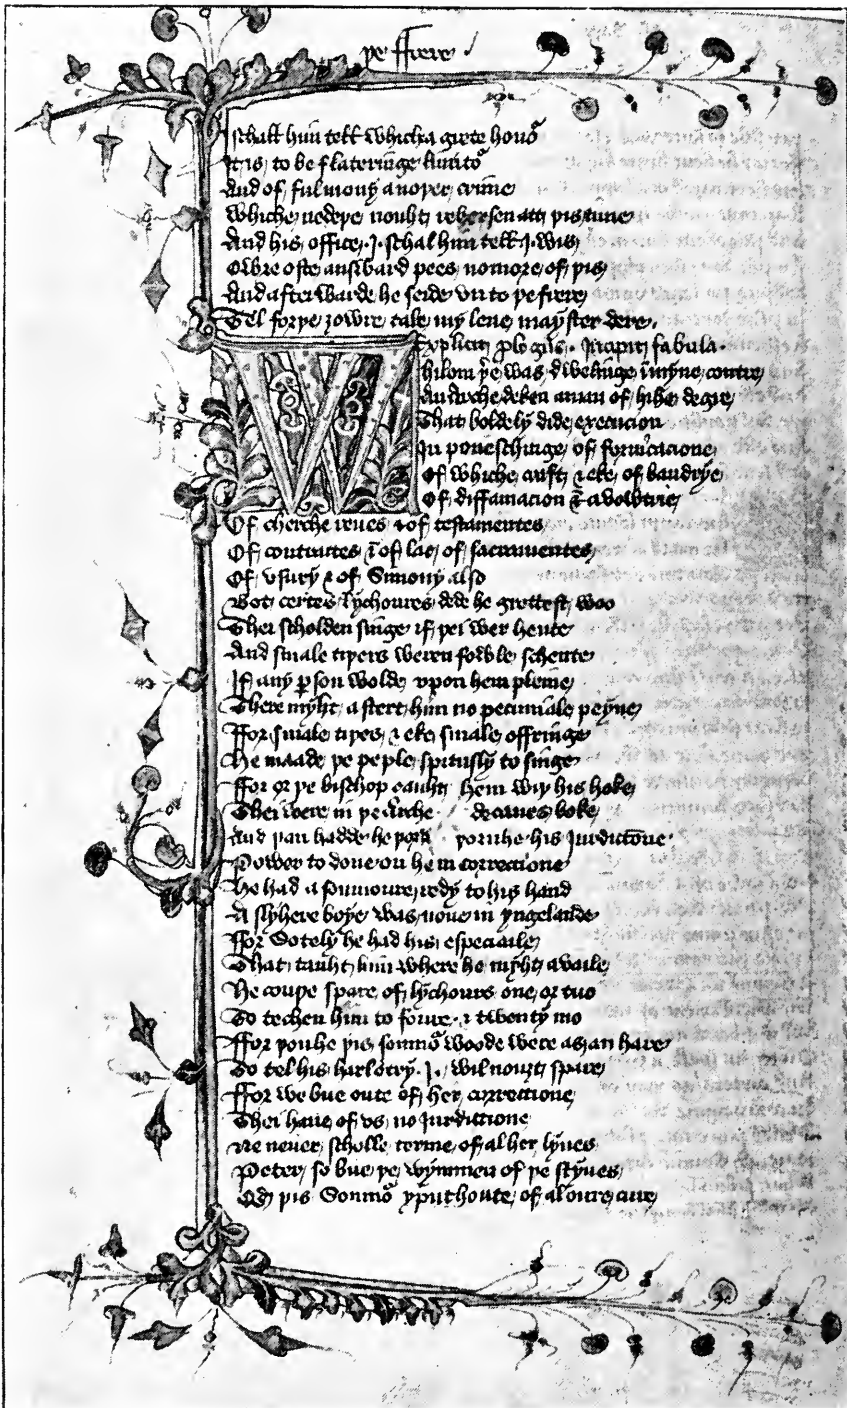 þe ffrere
I schall him tell whiche a grete honor
It is to be flateringe limitor
And of ful mony anoþer crime
Whiche nedeþe nouht rehersen att þis time
And his office I schal him tell I wis
Owre oste answard pees nomore of þis
And afterwarde he seide vnto þe frere
Tel forþe ȝowre tale my leue mayster dere
Explicit prologus Incipit fabula
Whilom þere was dwelinge in myne contre
An archedeken a man of hihe degre
That boldely dide execucion
In poneschinge of fornicacione
Of whiche craft & eke of baudrye
Of diffamacion & avowtrie
Of cherche reues & of testamentes
Of contractes & of lac of sacramentes
Of vsury & of Simony also
Bot certes lychoures dede he grettest woo
Thei scholden singe if þei wer hente
And smale tiþers weren fowle schente
If any person wolde vpon hem pleine
There myht astert him no pecuniale peyne
Ffor smale tiþes & eke smale offringe
He maade þe peple spitusly to singe
Ffor or þe bischop cauht hem wiþ his hoke
Thei were in þe arche decanes boke
And þan hadde he þorh his Jurdiccione
Power to done on hem correccione
He had a somnoure redy to his hand
A slyhere boye was none in yngelande
Ffor Sotely he had his especiaile
That tauht him where he myht availe
He couþe spare of lychours one or tuo
To techen him to foure & twenty mo
Ffor þouhe þis somnor woode were as an hare
To tel his harlotry I wil nouȝt spare
Ffor we bue oute of her correccione
Thei haue of vs no Jurdiccione
Ne neuer scholle terme of al her lyues
Peter so bue þe wymmen of þe styues
Qd þis Somnor yput houte of al oure cure